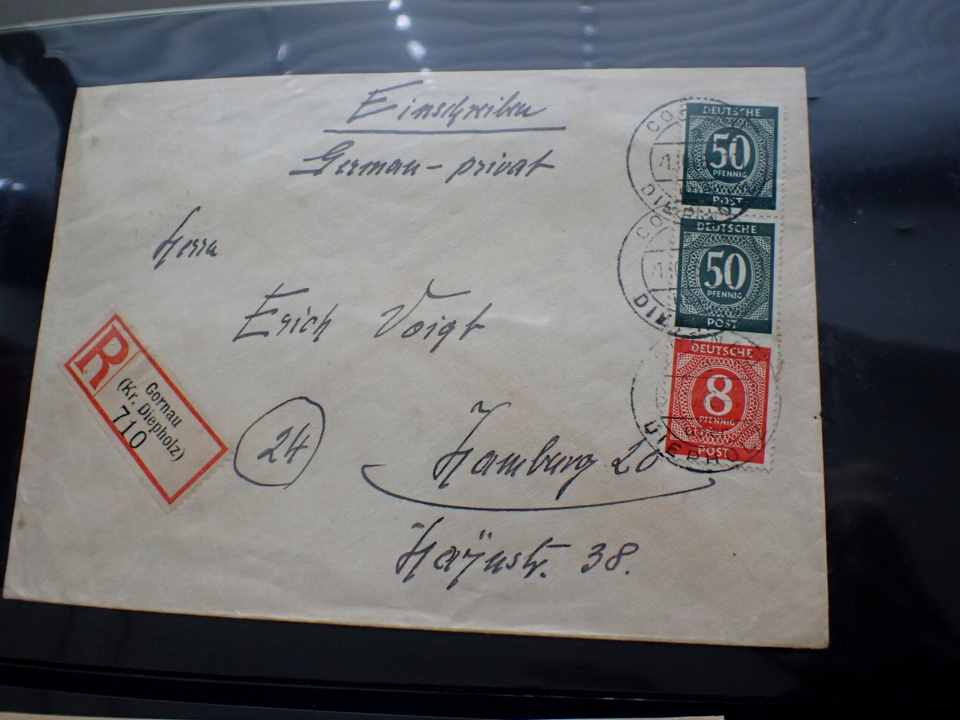 Einschreiben
German-privat
Herrn
Erich Voigt
24
Hamburg 20
Haynstr. 38.
R
Gornau
(Kr. Diepholz)
710
DEUTSCHE
50
PFENNIG
POST
DEUTSCHE
50
PFENNIG
POST
DEUTSCHE
8
PFENNIG
POST